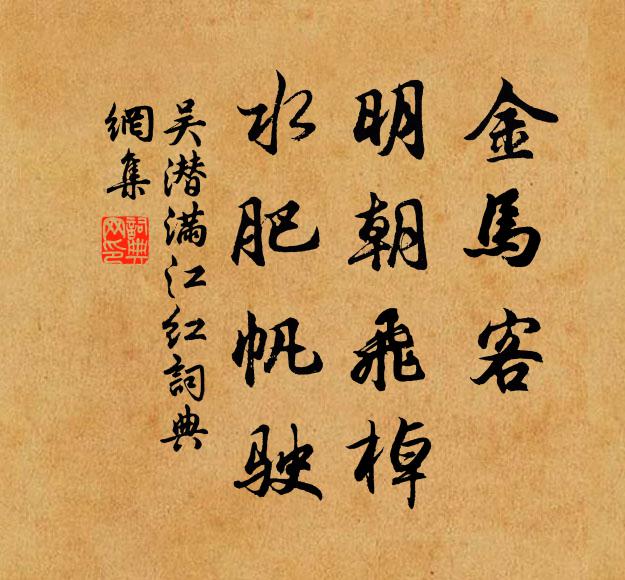 金馬客
明朝飛棹
水肥帆駛
吴潜满江红詞典
網集
詞典
网印